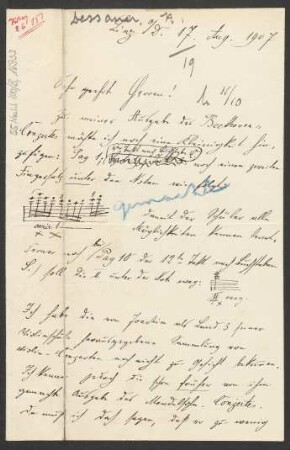 Dessauer
Linz a/D. 17 Aug. 1907
19
Sehr geehrte Herren!
Zu meiner Ausgabe des Beethoven-
Conzertes möchte ich noch eine Kleinigkeit hin-
zufügen: Pag 1, noch einen zweiten
Fingersatz unter den Noten
gemacht
Damit der Schüler alle
Möglichkeiten kennen lernt.
Ferner soll Pag 10 der 12te Takt nach Buchstaben
S.) soll die 2 unter der Note weg:
weg.
Ich habe die von Joachim als Band 3 seiner
Violinschule herausgegebene Sammlung von
Violin-Conzerten noch nicht zu Gesicht bekommen.
Ich kenne jedoch die schon früher von ihm
gemachte Ausgabe des Mendelssohn-Conzertes.
Da muß ich doch sagen, daß er zu wenig